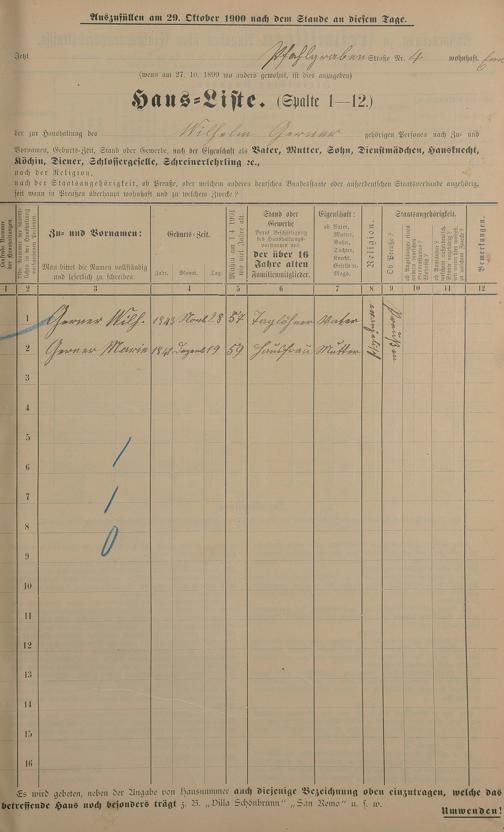 Auszufüllen am 29. Oktober 1900 nach dem Stande an diesem Tage.
Jetzt Pfahlgraben Straße Nr. 4 wohnhaft.
(wenn am 27. 10. 1899 wo anders gewohnt, ist dies anzugeben)
Haus-Liste. (Spalte 1—12.)
der zur Haushaltung des Wilhelm Gerner gehörigen Personen nach Zu- und
Vornamen, Geburts-Zeit, Stand oder Gewerbe, nach der Eigenschaft als Vater, Mutter, Sohn, Dienstmädchen, Hausknecht,
Köchin, Diener, Schlossergeselle, Schreinerlehrling ꝛc.,
nach der Religion,
nach der Staatsangehörigkeit, ob Preuße, oder welchem anderen deutschen Bundesstaate oder außerdeutschen Staatsverbande angehörig,
seit wann in Preußen überhaupt wohnhaft und zu welchem Zwecke?
Zu- und Vornamen:
Man bittet die Namen vollständig
und leserlich zu schreiben.
Geburts-Zeit.
Jahr. Monat. Tag.
wie viel Jahre alt.
Stand oder
Gewerbe
des Haushaltungs-
vorstandes und
der über 16
Jahre alten
Familienmitglieder.
Eigenschaft:
ob Vater,
Mutter,
Sohn,
Tochter,
Knecht,
Geselle o.
Magd.
Religion.
Ob Preuße?
Staatsangehörigkeit.
Bemerkungen.
1 2 3 4 5 6 7 8 9 10 11 12
1 Gerner Wilh. 1843 Novb 28 57 Taglöhner Vater evangelisch Preußen
2 Gerner Marie 1841 Dezemb 19 59 Hausfrau Mutter
3
4
5
6
7
8
9
10
11
12
13
14
15
16
1
1
0
Es wird gebeten, neben der Angabe von Hausnummer auch diejenige Bezeichnung oben einzutragen, welche das
betreffende Haus noch besonders trägt z. B. „Villa Schönbrunn" „San Remo" u. s. w.
Umwenden!